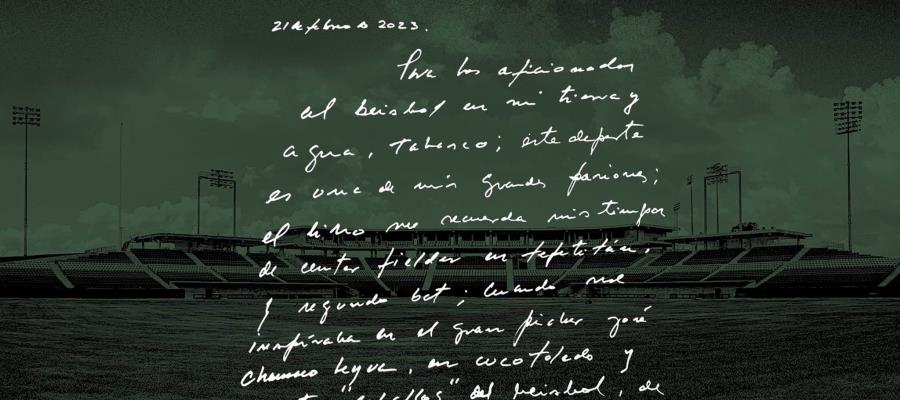 21 de febrero de 2023.
Para los aficionados
al beisbol en mi tierra y
agua, Tabasco; este deporte
es una de mis grandes pasiones;
el libro me recuerda mis tiempos
de center fielder en Tepetitán,
y segundo bat; cuando me
inspiraba en el gran pícher José
Chamaco Leyva, en Cuco Toledo y
del beisbol, de